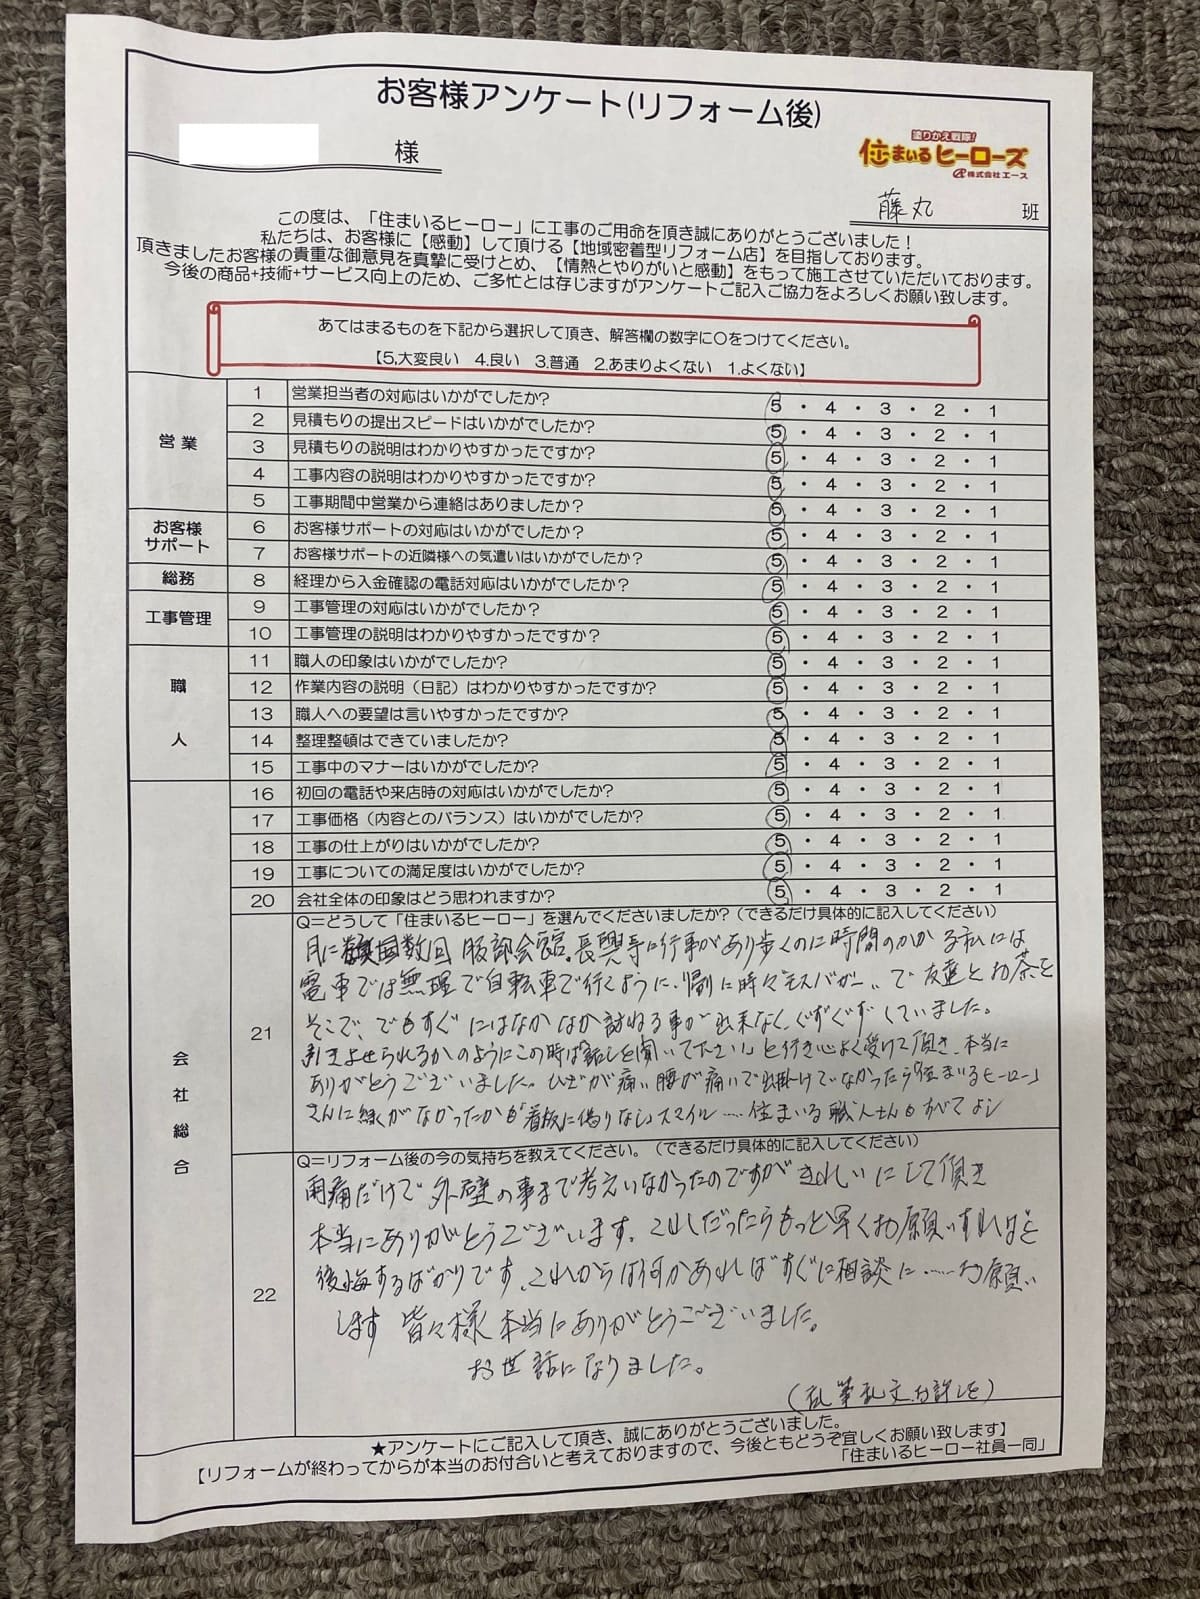 お客様アンケート(リフォーム後)
様
塗りかえ戦隊!
住まいるヒーローズ
株式会社エース
藤丸 班
この度は、「住まいるヒーロー」に工事のご用命を頂き誠にありがとうございました!
私たちは、お客様に【感動】して頂ける【地域密着型リフォーム店】を目指しております。
頂きましたお客様の貴重な御意見を真摯に受けとめ、【情熱とやりがいと感動】をもって施工させていただいております。
今後の商品+技術+サービス向上のため、ご多忙とは存じますがアンケートご記入ご協力をよろしくお願い致します。
あてはまるものを下記から選択して頂き、解答欄の数字に○をつけてください。
【5,大変良い 4.良い 3.普通 2.あまりよくない 1.よくない】
営業
1 営業担当者の対応はいかがでしたか? 5・4・3・2・1
2 見積もりの提出スピードはいかがでしたか? 5・4・3・2・1
3 見積もりの説明はわかりやすかったですか? 5・4・3・2・1
4 工事内容の説明はわかりやすかったですか? 5・4・3・2・1
5 工事期間中営業から連絡はありましたか? 5・4・3・2・1
お客様
サポート
6 お客様サポートの対応はいかがでしたか? 5・4・3・2・1
7 お客様サポートの近隣様への気遣いはいかがでしたか? 5・4・3・2・1
総務
8 経理から入金確認の電話対応はいかがでしたか? 5・4・3・2・1
工事管理
9 工事管理の対応はいかがでしたか? 5・4・3・2・1
10 工事管理の説明はわかりやすかったですか? 5・4・3・2・1
職人
11 職人の印象はいかがでしたか? 5・4・3・2・1
12 作業内容の説明(日記)はわかりやすかったですか? 5・4・3・2・1
13 職人への要望は言いやすかったですか? 5・4・3・2・1
14 整理整頓はできていましたか? 5・4・3・2・1
15 工事中のマナーはいかがでしたか? 5・4・3・2・1
会社総合
16 初回の電話や来店時の対応はいかがでしたか? 5・4・3・2・1
17 工事価格(内容とのバランス)はいかがでしたか? 5・4・3・2・1
18 工事の仕上がりはいかがでしたか? 5・4・3・2・1
19 工事についての満足度はいかがでしたか? 5・4・3・2・1
20 会社全体の印象はどう思われますか? 5・4・3・2・1
21 Q=どうして「住まいるヒーロー」を選んでくださいましたか?(できるだけ具体的に記入してください)
月に数回 服部会館、長興寺に行事があり歩くのに時間のかかる私には
電車では無理で自転車で行くように、帰りに時々モスバーガーで友達とお茶を
そこで、でもすぐにはなかなか訪ねる事が出来なく、ぐずぐずしていました。
引きよせられるかのようにこの時ぱ「話しを聞いて下さい」と行き心よく受けて頂き、本当に
ありがとうございました。ひざが痛い腰が痛いで出掛けていなかったら「住まいるヒーロー」
さんに縁がなかったかも「看板に偽りなし」スマイル……住まいる職人さんもすべてよし
22 Q=リフォーム後の今の気持ちを教えてください。(できるだけ具体的に記入してください)
雨痛だけで外壁の事まで考えいなかったのですがきれいにして頂き
本当にありがとうございます。これだったらもっと早くお願いすればと
後悔するばかりです。これからは何かあればすぐに相談に……お願い
します 皆々様本当にありがとうございました。
お世話になりました。
(乱筆乱文お許しを)
★アンケートにご記入して頂き、誠にありがとうございました。
【リフォームが終わってからが本当のお付合いと考えておりますので、今後ともどうぞ宜しくお願い致します】
「住まいるヒーロー社員一同」